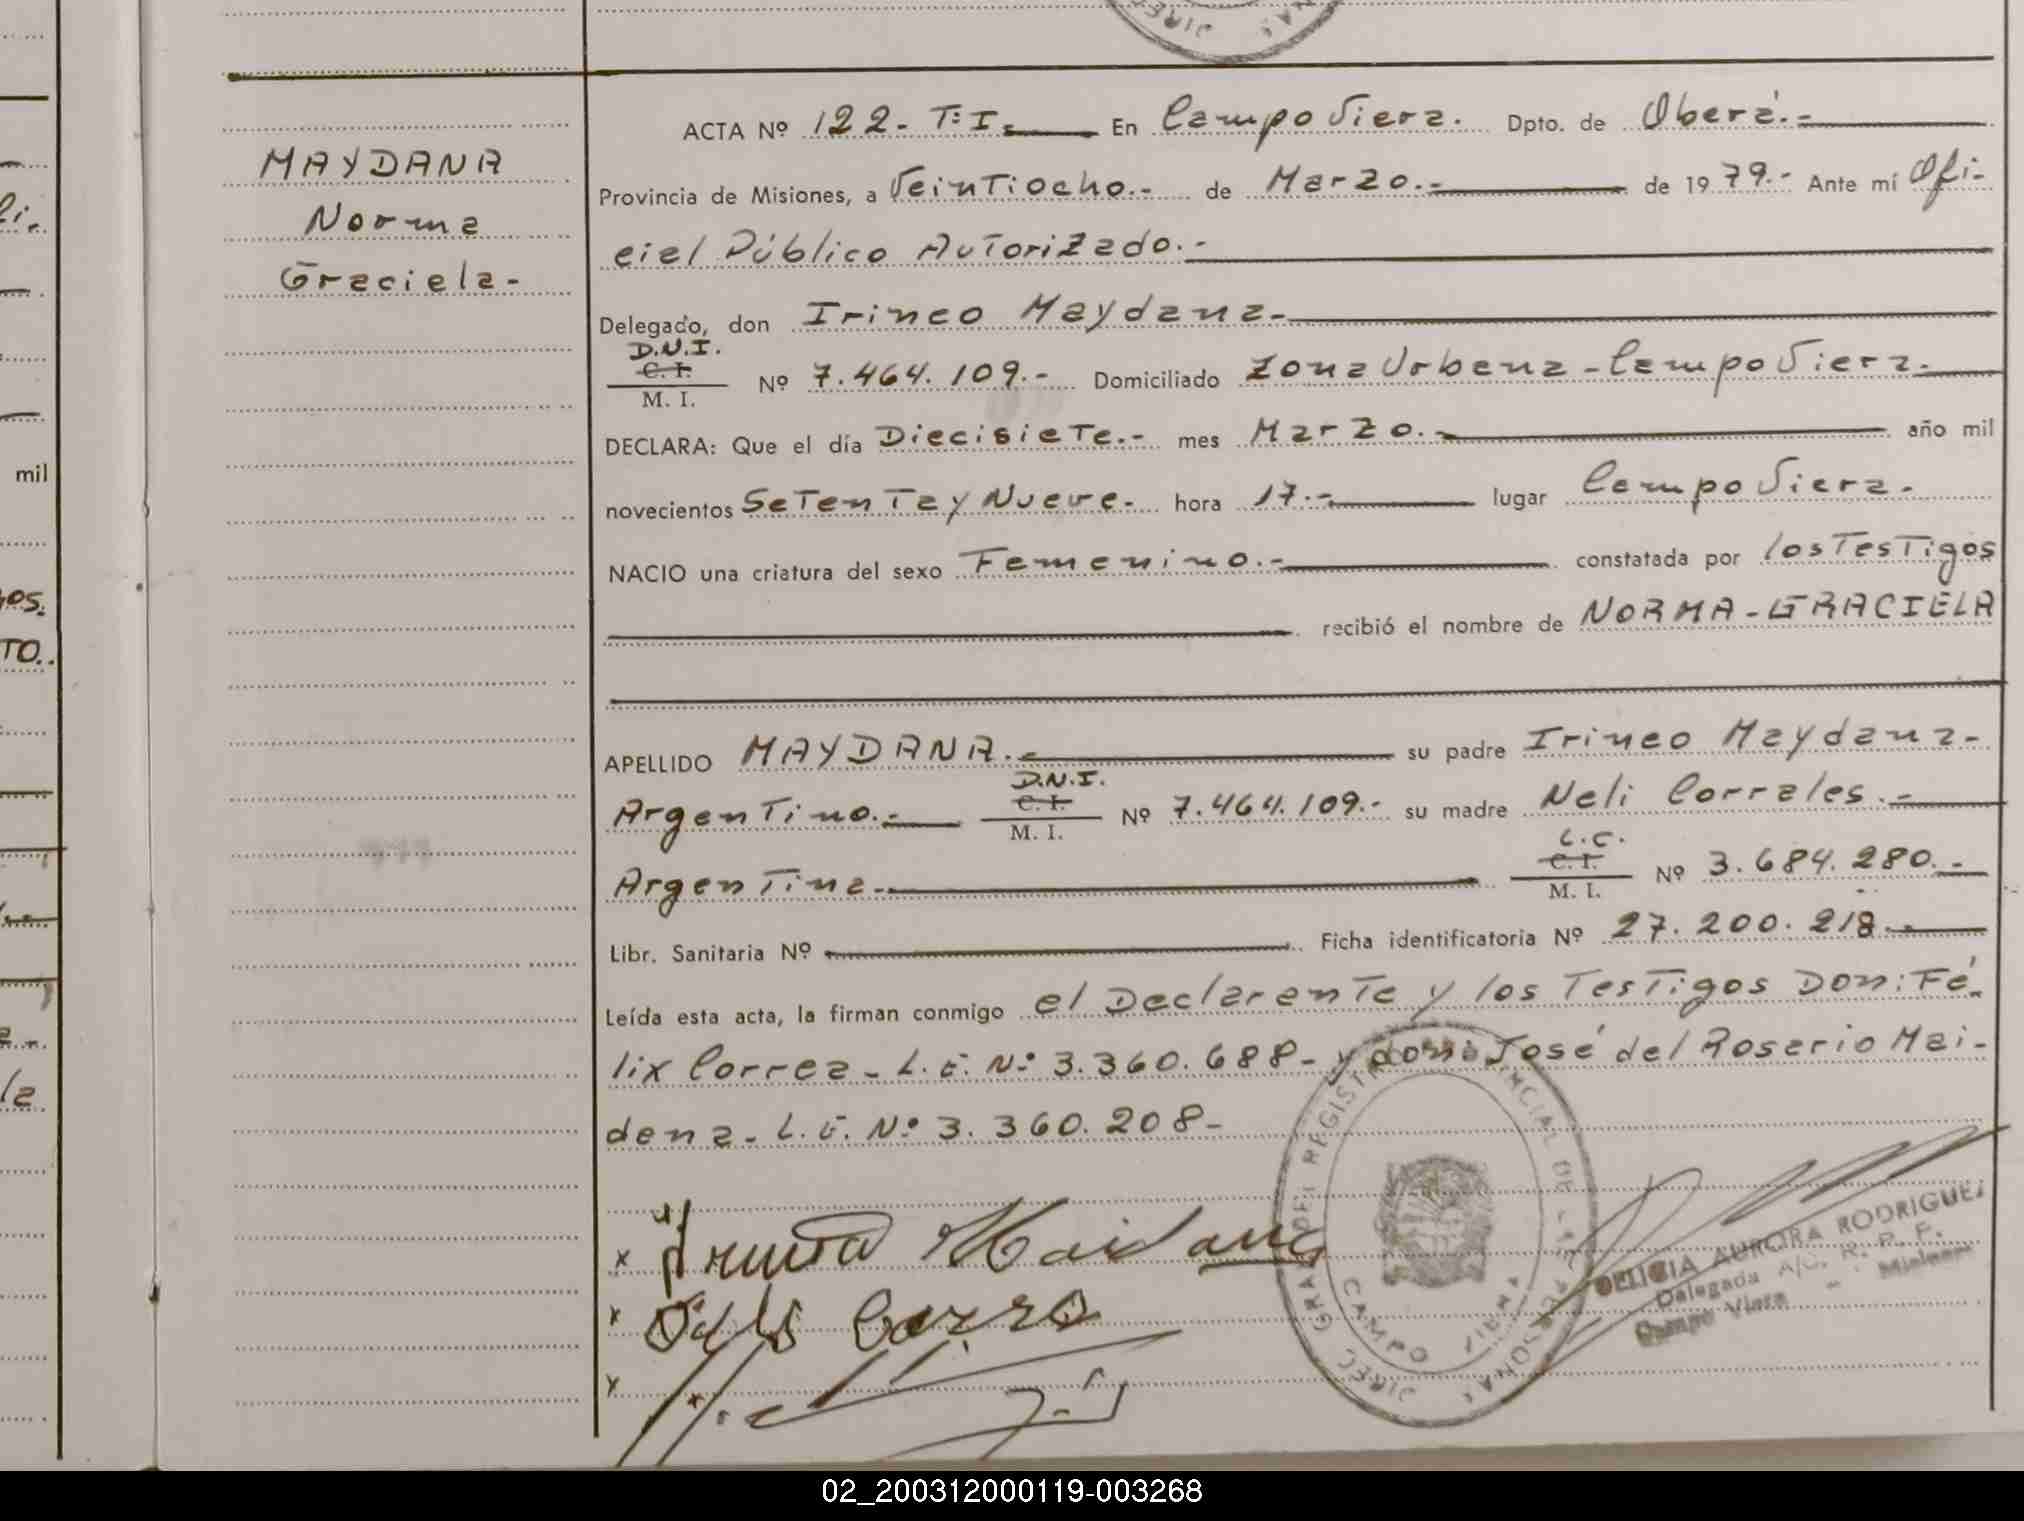 ACTA Nº 122.- T: I.- En Campo Viera. Dpto. de Oberá.-
MAYDANA
Norma
Graciela-
Provincia de Misiones, a Veintiocho.- de Marzo.- de 1979.- Ante mí Ofi-
cial Público Autorizado.-
Delegado, don Irineo Maydana-
D.N.I.
C. I.
M. I.
Nº 7.464.109.- Domiciliado Zona Urbana - Campo Viera.-
DECLARA: Que el día Diecisiete.- mes Marzo.- año mil
novecientos Setenta y Nueve.- hora 17.- lugar Campo Viera.-
NACIO una criatura del sexo Femenino.- constatada por los Testigos
recibió el nombre de NORMA-GRACIELA
APELLIDO MAYDANA.- su padre Irineo Maydana-
D.N.I.
C. I.
M. I.
Argentino.- Nº 7.464.109.- su madre Neli Corrales.-
L.C.
C. I.
M. I.
Argentina.- Nº 3.684.280.-
Libr. Sanitaria Nº Ficha identificatoria Nº 27.200.218.-
Leída esta acta, la firman conmigo el Declarante y los Testigos Don: Fé-
lix Correa - L.E. Nº 3.360.688- y don: José del Rosario Mai-
dana - L.E. Nº 3.360.208-
DELICIA AURORA RODRIGUEZ
Delegada A/C. R. P. F.
Campo Viera - Misiones
CAMPO VIERA
mil
02_200312000119-003268